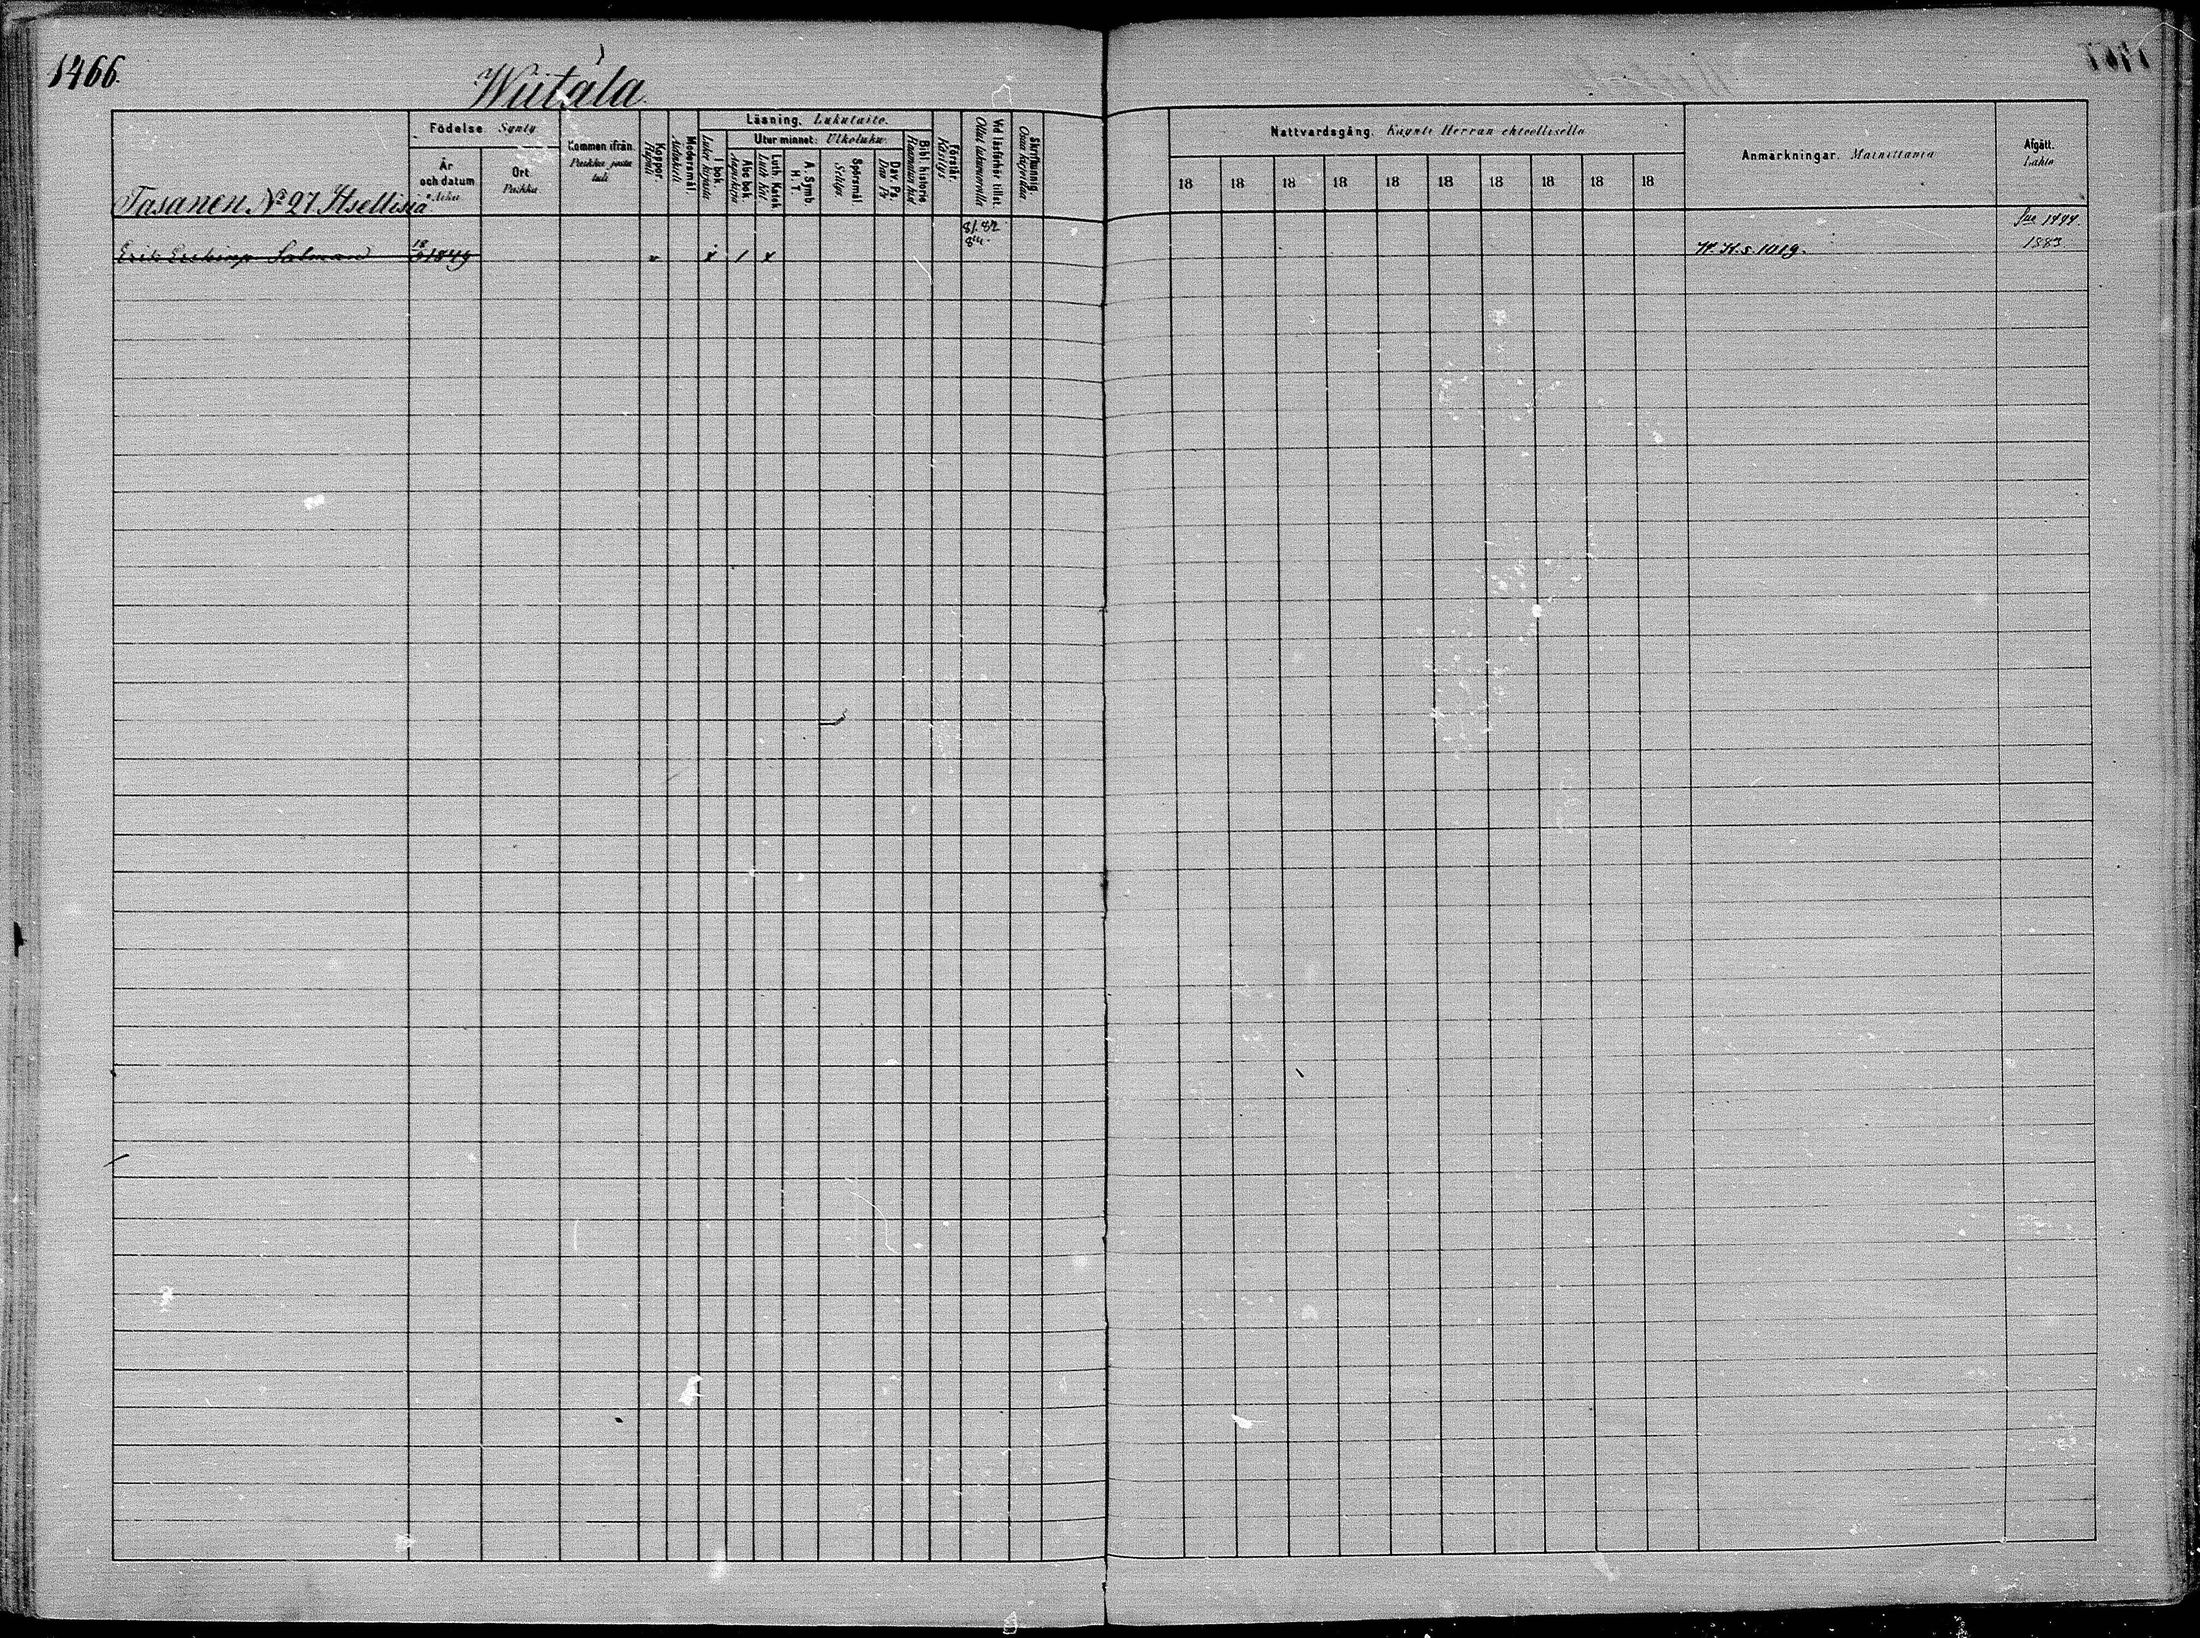 1466.
Wiitala.
Läsning. Lukutaito.
Födelse. Synty
Kommen ifrån.
Utur minnet: Ulkoluku
Nattvardsgång. Käynti Herran ehtoollisella
Anmärkningar. Mainittavia
Afgått.
Lähtö
År
och datum
Aika
Ort.
Paikka
Paikka josta
tuli
Koppor.
Rupuli
Modersmål.
Äidinkieli
I bok.
Lukee kirjasta
Abc bok.
Aapiskirja
Luth. Katek.
Luth. Kat.
A. Symb.
H. T.
Spörsmål
Selitys.
Dav. Ps.
Dav. Ps.
Bibl. historie
Raamatun hist.
Förstår.
Käsitys.
Vid läsförhör tillst.
Ollut lukukinkerillä
Skrifkunnig.
Osaa kirjoittaa
18 18 18 18 18 18 18 18 18 18
Tasanen No 27 Itsellisiä
81. 82
84.
Erik Salman 1849 x 1 x
W. K. s. 1019.
1883